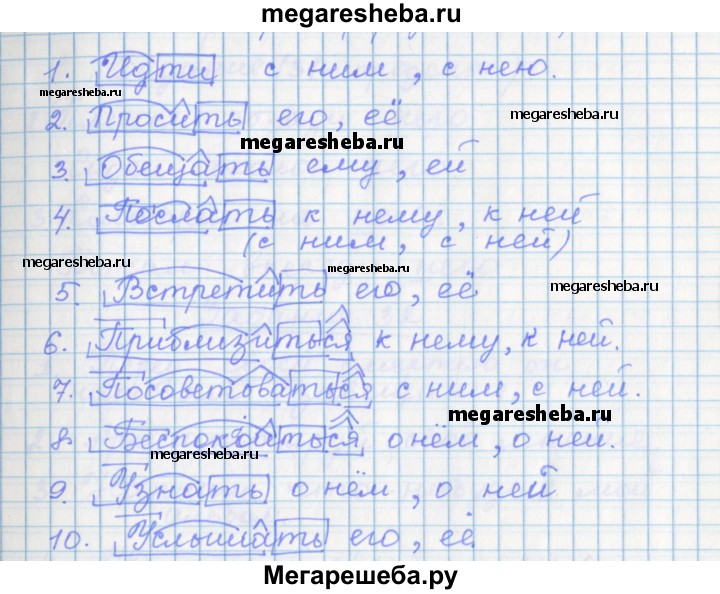 megaresheba.ru
1. Идти с ним, с нею.
megaresheba.ru
2. Просить его, её
megaresheba.ru
megaresheba.ru
3. Обещать ему, ей
4. Послать к нему, к ней
(с ним, с ней)
megaresheba.ru
megaresheba.ru
5. Встретить его, её
6. Приблизиться к нему, к ней.
7. Посоветоваться с ним, с ней.
megaresheba.ru
8. Беспокоиться о нём, о ней.
megaresheba.ru
9. Узнать о нём, о ней
10. Услышать его, её
Мегарешеба.ру